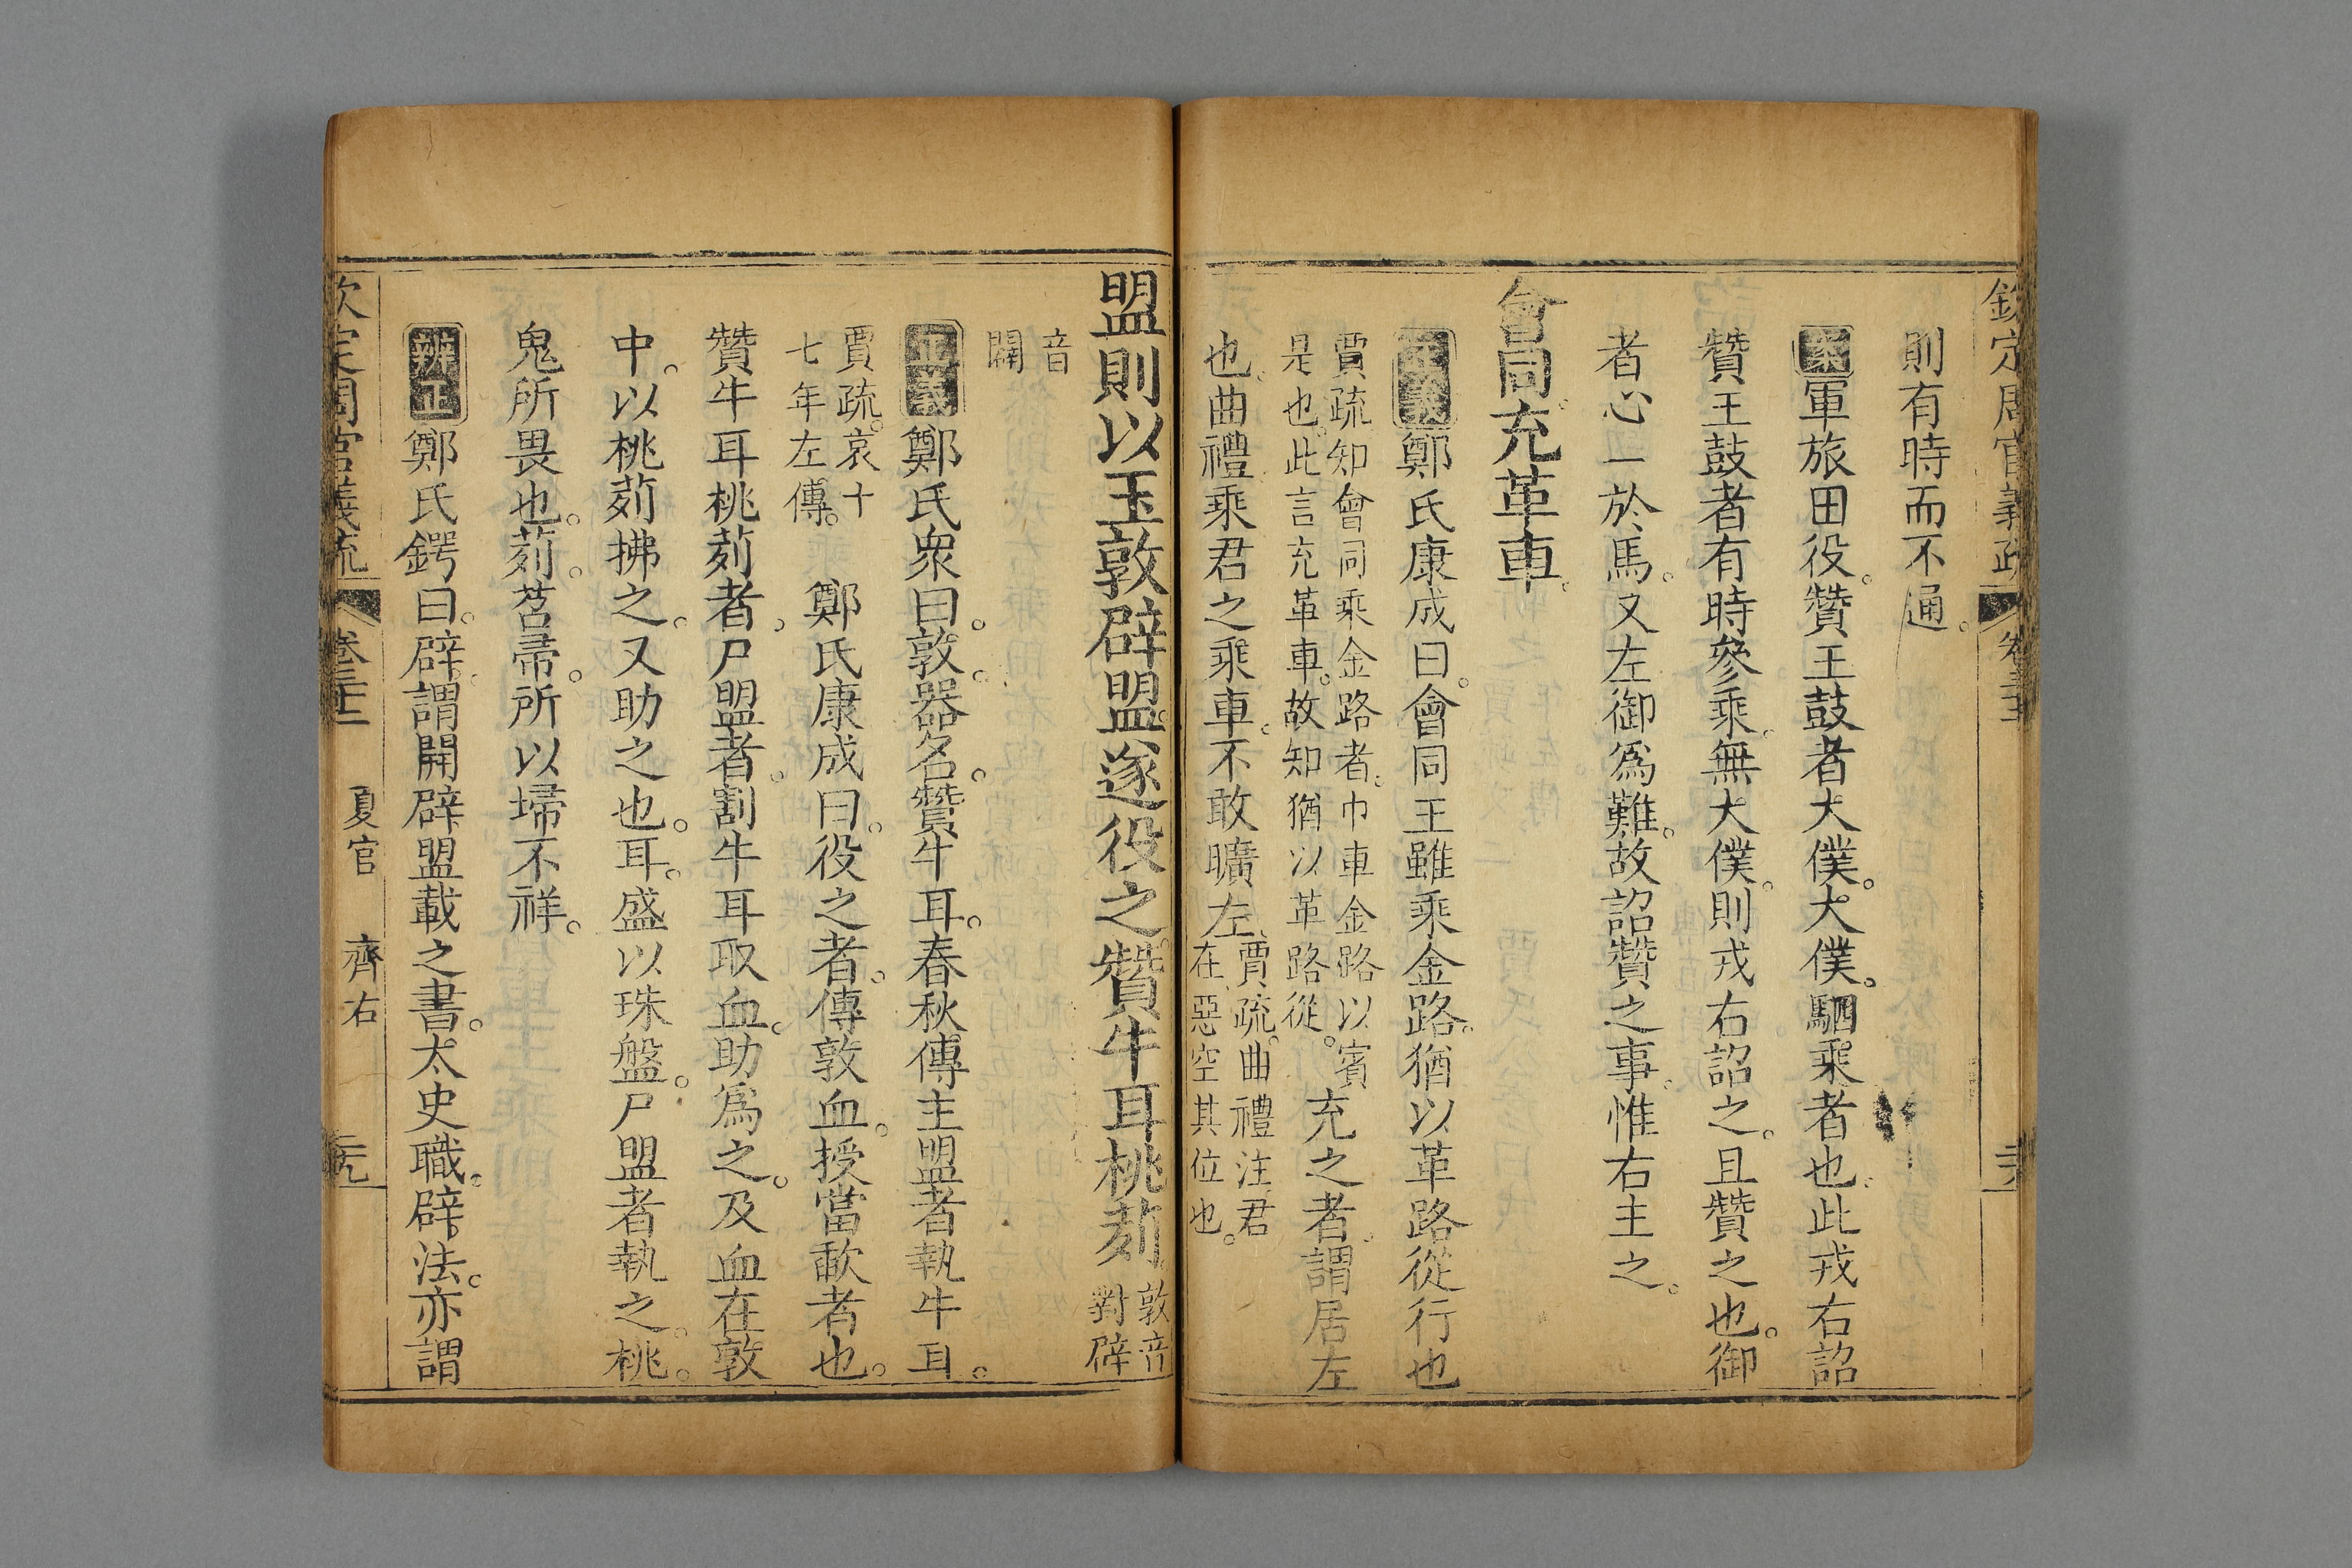 欽定周官義疏 卷三十二 三十八
則有時而不通。
案軍旅田役。贊王鼓者大僕。大僕。駟乘者也。此戎右詔
贊王鼓者有時參乘。無大僕。則戎右詔之。且贊之也。御
者心一於馬。又左御爲難。故詔贊之事。惟右主之。
會同充革車。
正義鄭氏康成曰。會同王雖乘金路。猶以革路從行也
賈疏知會同乘金路者。巾車金路以賓
是也。此言充革車。故知猶以革路從。充之者。謂居左
也。曲禮乘君之乘車。不敢曠左。賈疏。曲禮注。君
在。惡空其位也。
盟則以玉敦辟盟。遂役之。贊牛耳桃茢。敦音
對辟
音
闢
正義鄭氏衆曰。敦。器名。贊牛耳。春秋傳主盟者執牛耳。
賈疏。哀十
七年左傳。 鄭氏康成曰。役之者。傳敦血。授當歃者也。
贊牛耳桃茢者。尸盟者。割牛耳取血。助爲之。及血在敦
中。以桃茢拂之。又助之也。耳。盛以珠盤。尸盟者執之。桃。
鬼所畏也。茢。苕帚。所以埽不祥。
辨正鄭氏鍔曰。辟。謂開辟盟載之書。太史職。辟法。亦謂
欽定周官義疏 卷三十二 夏官 齊右 三十九